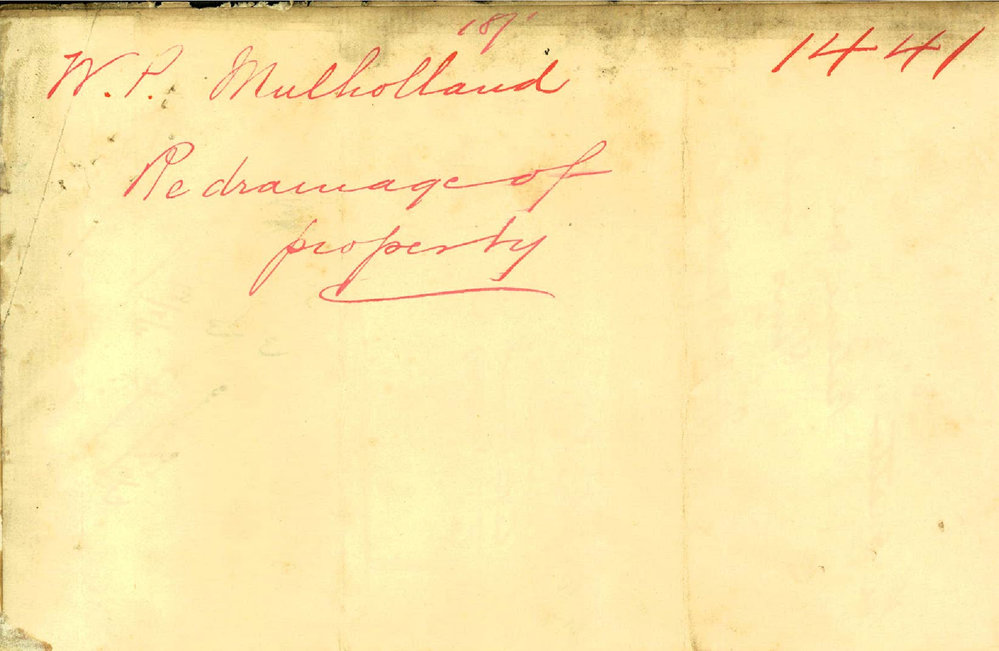 W. P. Mulholland 1441
Re drainage of
property